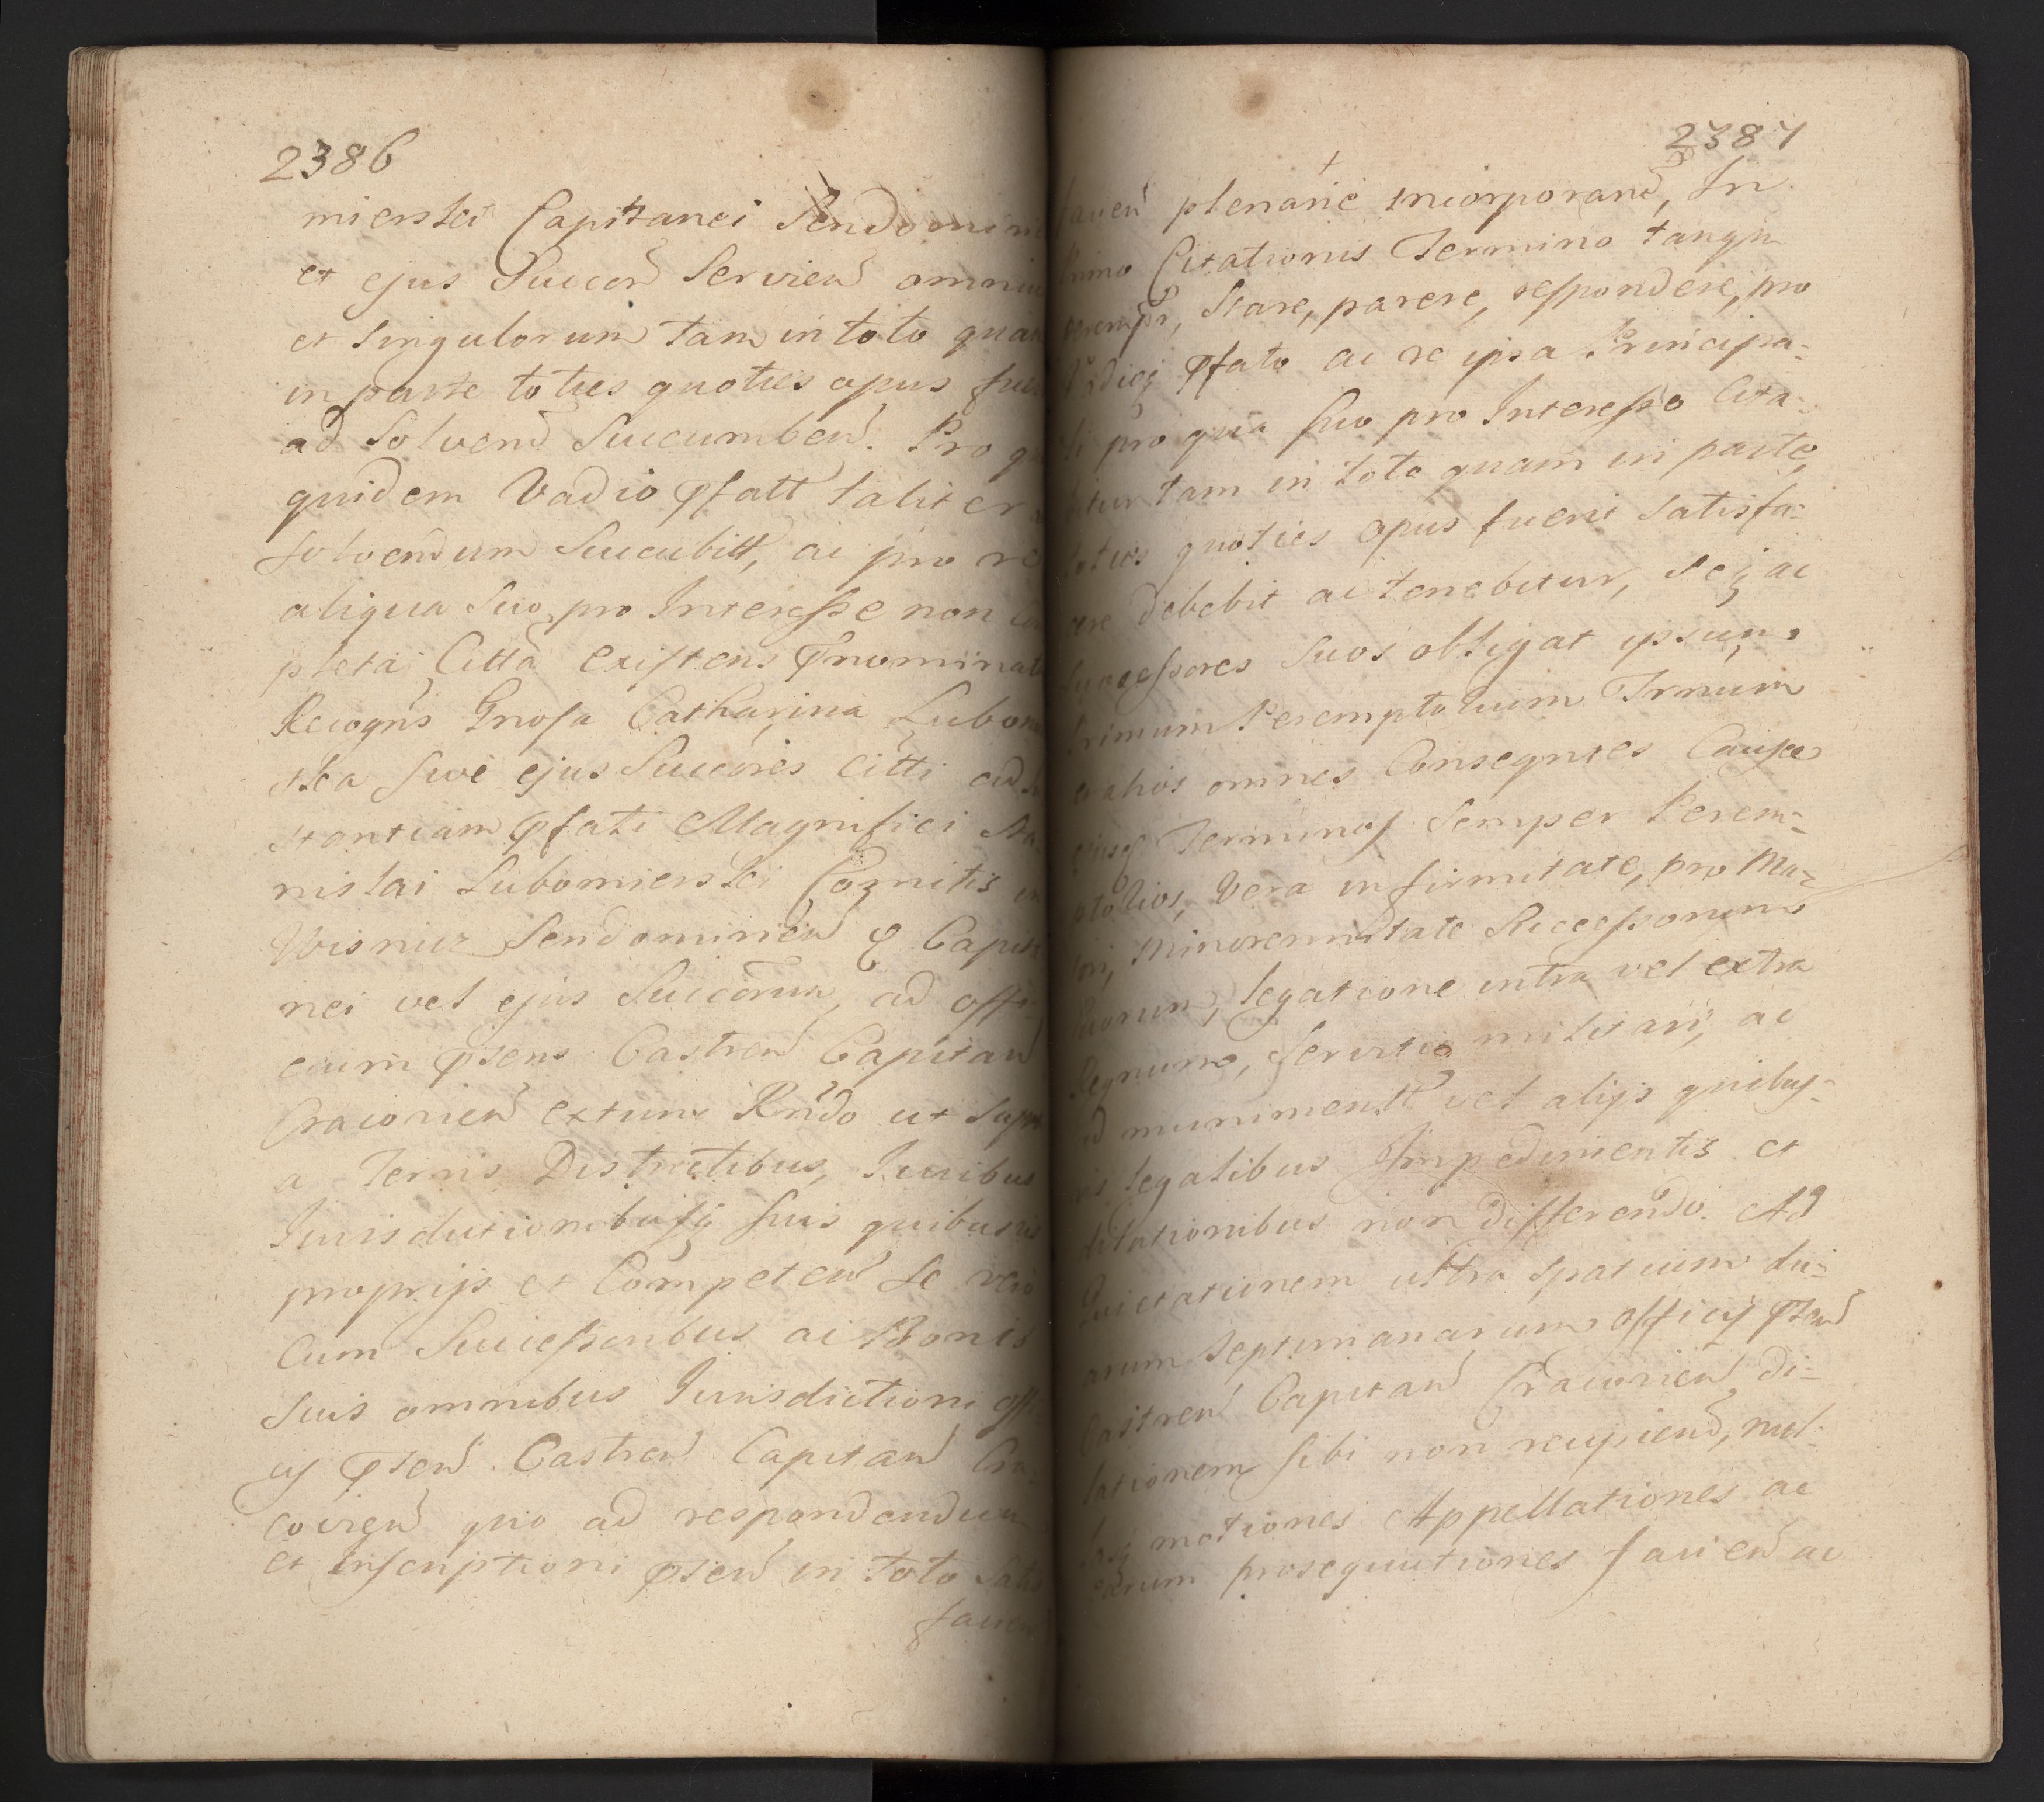 2386
mierski Capitanei Sendomin
et ejus Succor Servien omniu
et Singulorum tam in toto quam
in parte toties quoties opus fue
ad Solvend Succumben. Pro q
quidem Vadio pfatt taliter
solvendum Succubitt, ac pro re
aliqua Suo pro Interesse non Com
pleta Citta existens Pnominata
Recogns Gnosa Catharina Lubom
ska sive ejus Succores citti ad In
stantiam pfati Magnifici Sta-
nislai Lubomierski Comitis in
Wisnicz Sendominien & Capita
nei vel ejus Succorum, ad offi-
cium psens Castren Capitan
Cracovien extunc Rndo ut supra
a Terris Districtibus, Iuribus
Iurisdictionibusq suis quibusvis
proprijs et Competen Se vero
Cum Successoribus ac Bonis
Suis omnibus Iurisdictioni offi
cij psen Castren Capitan Cra-
covien quo ad respondendum
et Inscriptioni psen in toto Satis
facien
2387
facien plenarie incorporand, In
Primo Citationis Termino tanqu
perempt, Stare, parere, respondere, pro
Vadioq pfato ac re ipsa Principa-
li pro qua suo pro Interesse Cita-
bitur tam in toto quam in parte
toties quoties opus fuerit Satisfa-
cere debebit ac tenebitur, Seq ac
Successores Suos obligat ipsum
Primum Peremptorium Trnum
et alios omnes Consequtes Causae
ejusq Terminos Semper Perem-
ptorios, Vera infirmitate, pro Ma-
jori, Minorennitate Successorum
Suorum, legatione intra vel extra
Regnum, Servitio militari, ac
ad munimentt vel alijs quibus-
vis legalibus Impedimentis et
dilationibus non differendo. Ad
Quietationem ultra spatium du-
arum Septimanarum officij psen
Castren Capitan Cracovien di-
lationem sibi non recipiend, nul-
lasq motiones Appellationes ac
earum prosequutiones facien ac